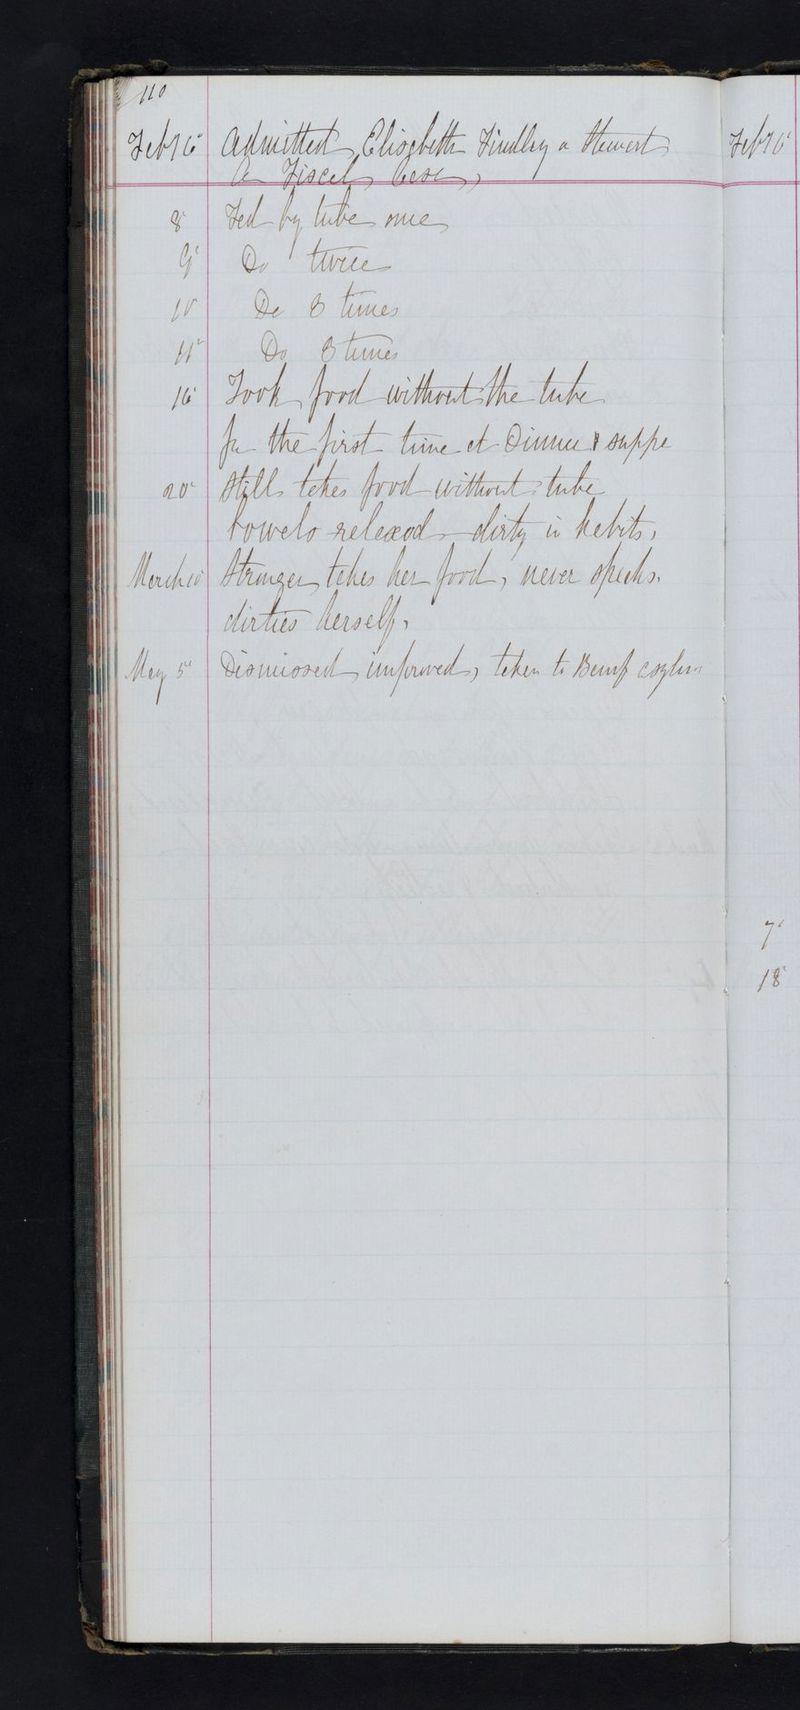 110
Feby 6 Admitted Elisabeth Findlay or Stewart
A Fiscal Case,
8 Fed by tube once
9 Do twice
10 Do 3 times
11 Do 3 times
16 Took food without the tube
for the first time at Dinner & supper
20 Still takes food without tube
bowels relaxed dirty in habits,
March 10 Stronger, takes her food, never speaks.
dirties herself,
May 5 Dismissed improved, taken to Banff asylum
Feby 6
7
18